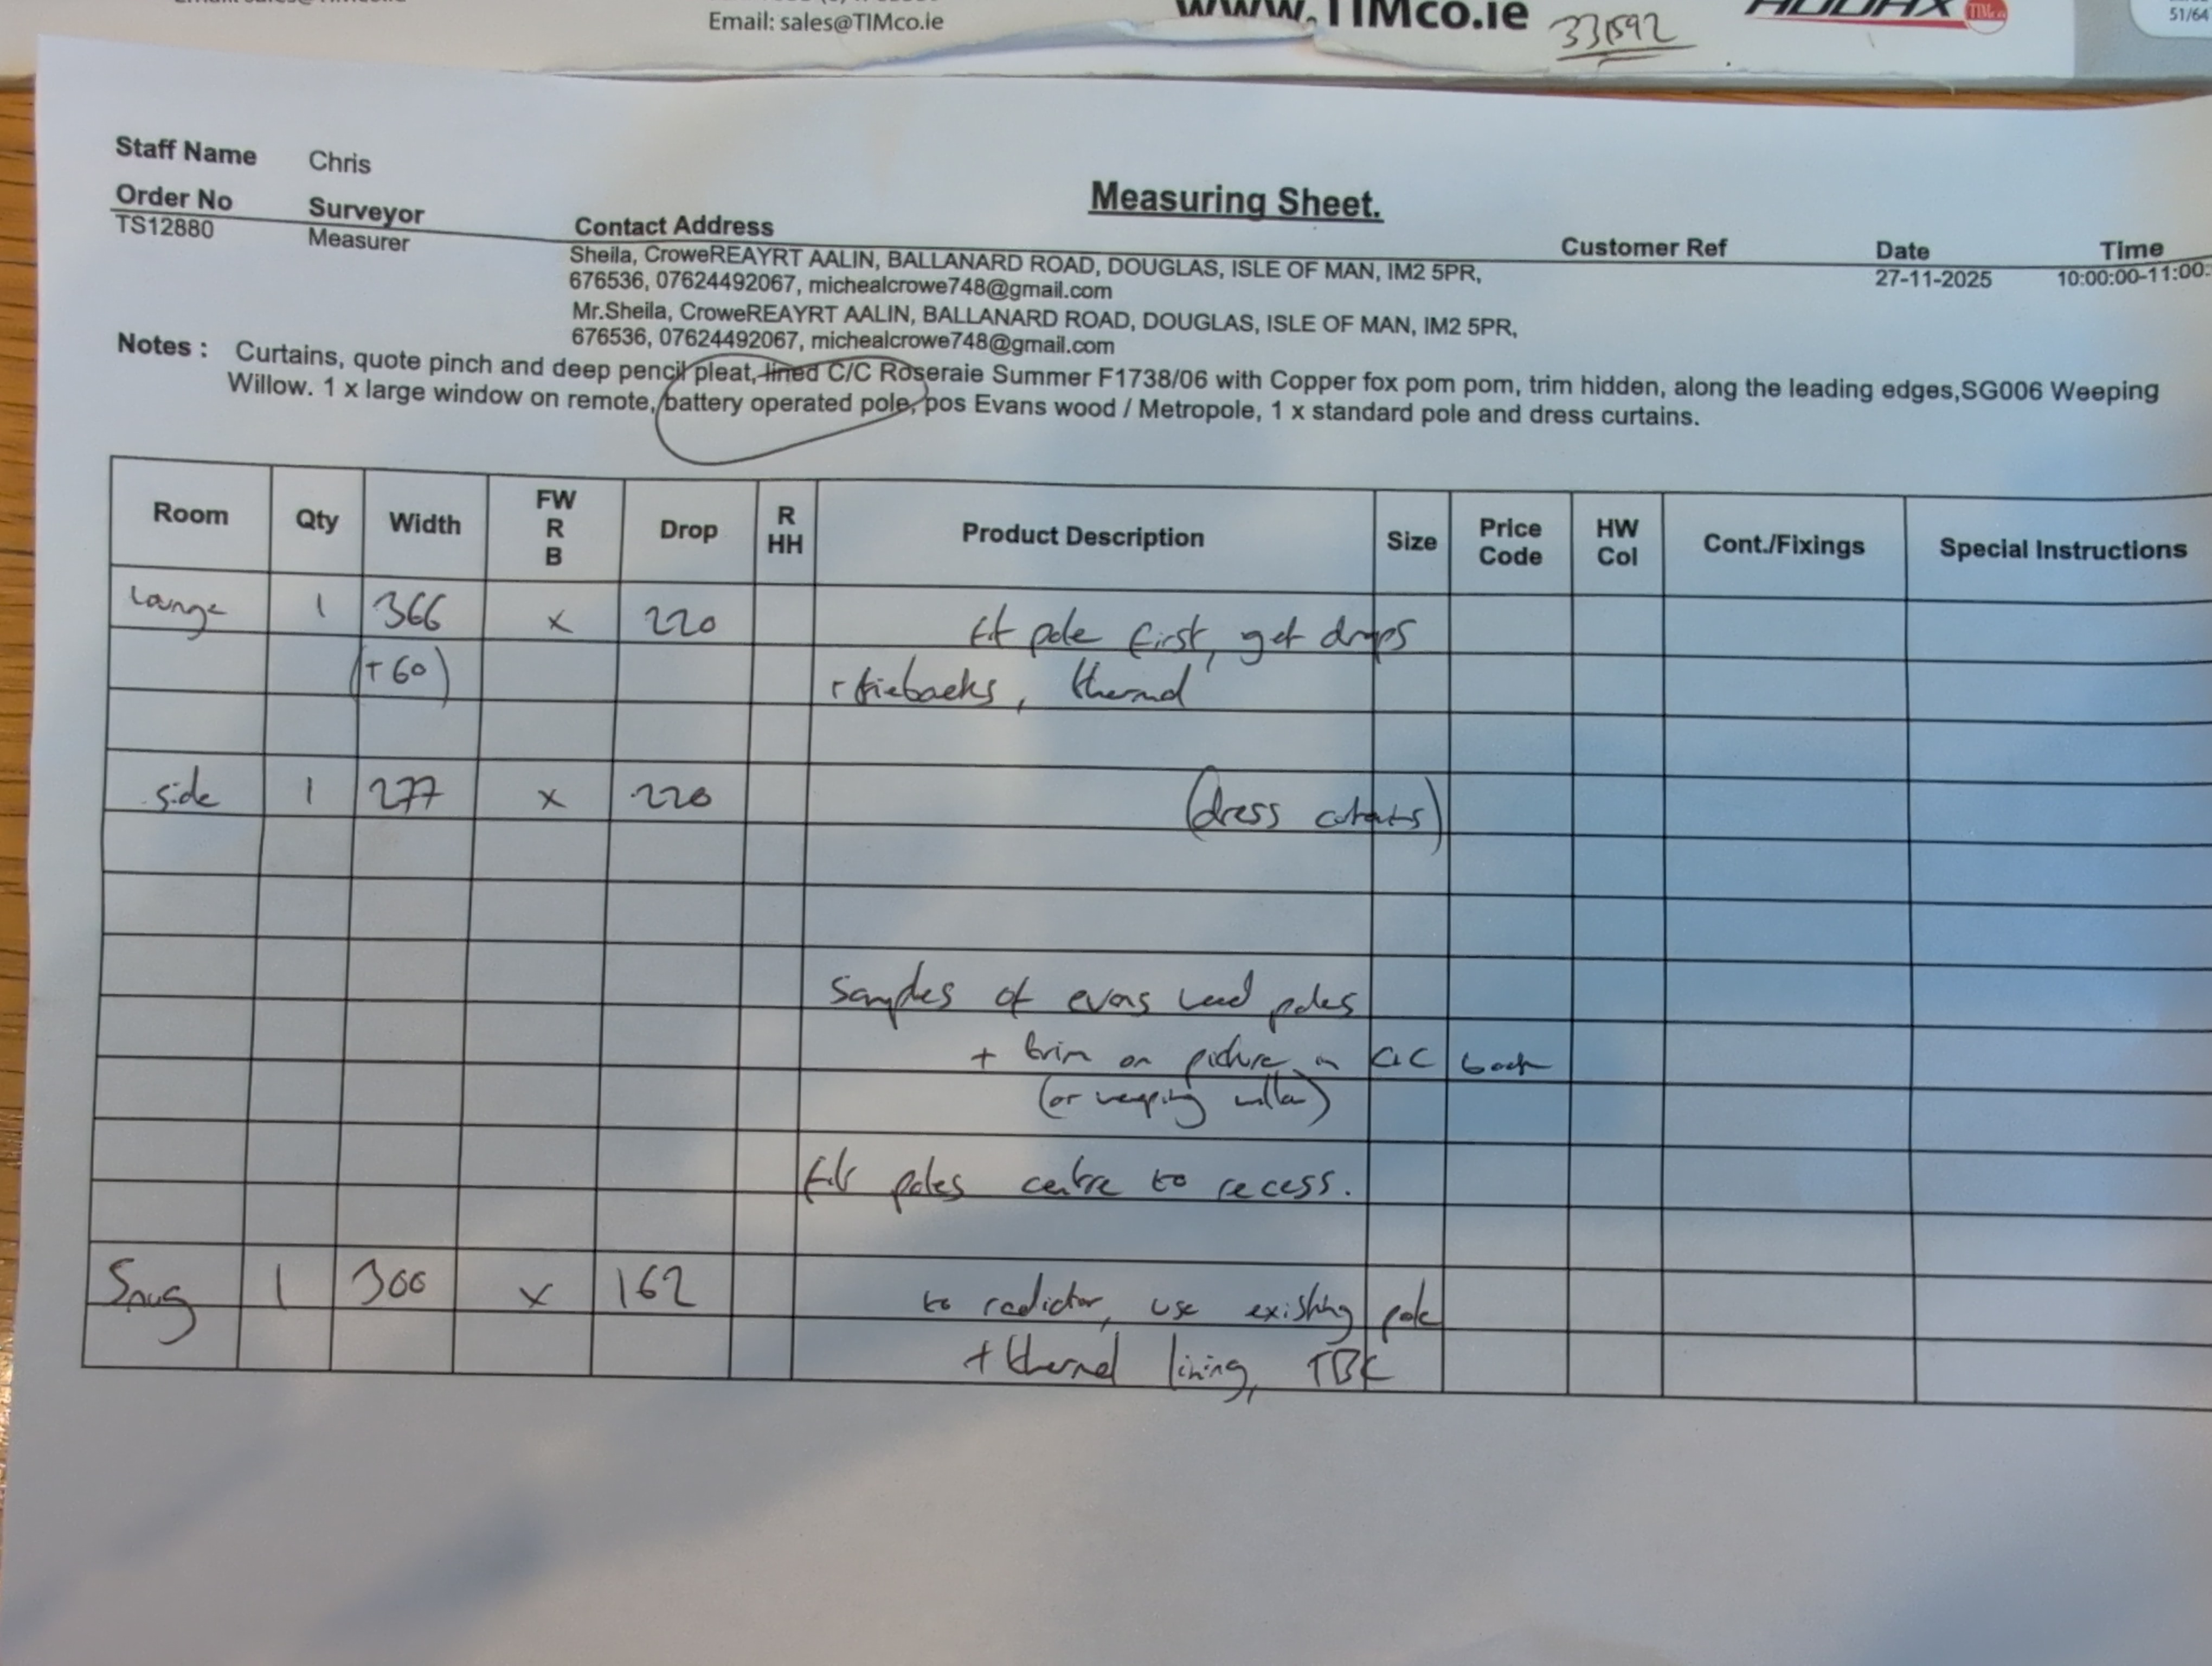 Email: sales@TIMco.ie
www.TIMco.ie
TIMco
51/64
Staff Name Chris
Measuring Sheet.
Order No Surveyor Contact Address Customer Ref Date Time
TS12880 Measurer Sheila, CroweREAYRT AALIN, BALLANARD ROAD, DOUGLAS, ISLE OF MAN, IM2 5PR, 27-11-2025 10:00:00-11:00:
676536, 07624492067, michealcrowe748@gmail.com
Mr.Sheila, CroweREAYRT AALIN, BALLANARD ROAD, DOUGLAS, ISLE OF MAN, IM2 5PR,
676536, 07624492067, michealcrowe748@gmail.com
Notes : Curtains, quote pinch and deep pencil pleat, lined C/C Roseraie Summer F1738/06 with Copper fox pom pom, trim hidden, along the leading edges,SG006 Weeping
Willow. 1 x large window on remote, battery operated pole, pos Evans wood / Metropole, 1 x standard pole and dress curtains.
Room Qty Width FW R B Drop R HH Product Description Size Price Code HW Col Cont./Fixings Special Instructions
Lounge 1 366 x 220 fit pole first, get drops
(+60) + tiebacks, thermal
side 1 277 x 220 (dress curtains)
samples of evans wood poles
+ trim on picture in C&C book
(or weeping willow)
fit poles centre to recess.
Snug 1 300 x 162 to radiator, use existing pole
+ thermal lining, TBC